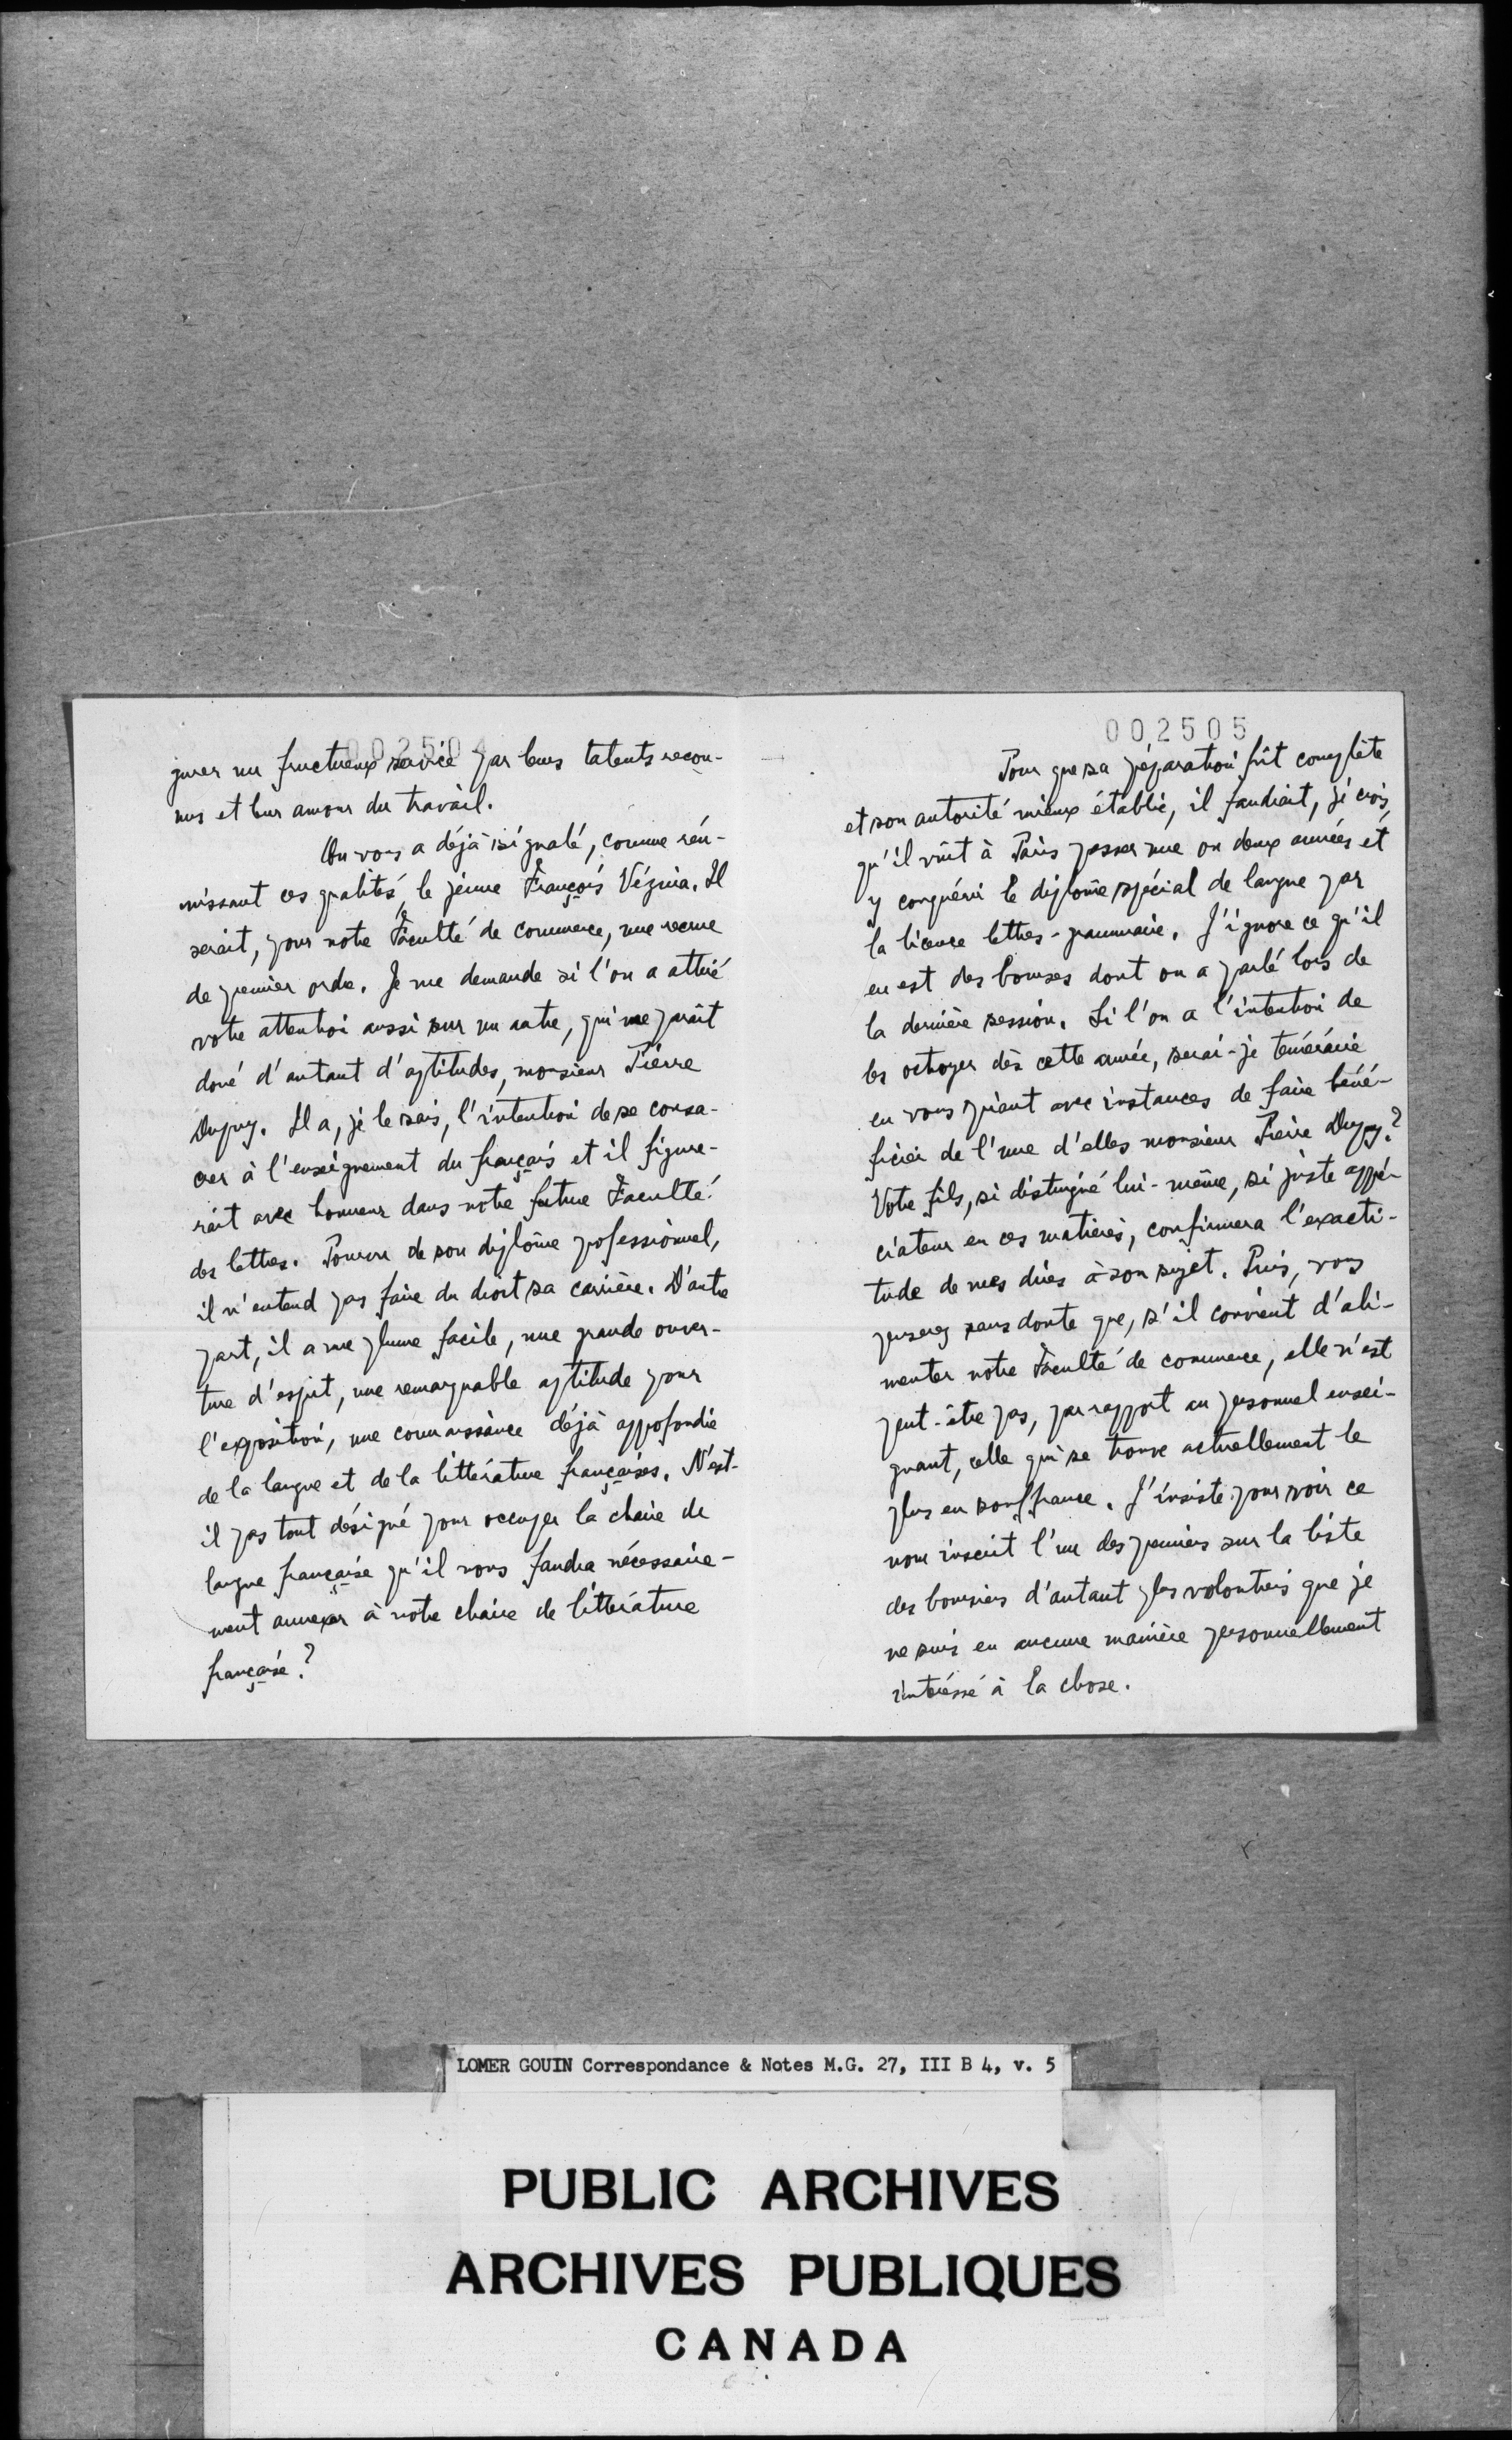 002504
gurer un fructueux service par leurs talents recon-
nus et leur amour du travail.
On vous a déjà signalé, comme réu-
nissant ces qualités, le jeune François Vézina. Il
serait, pour notre Faculté de commerce, une recrue
de premier ordre. Je me demande si l'on a attiré
votre attention aussi sur un autre, qui me paraît
doué d'autant d'aptitudes, monsieur Pierre
Dupuy. Il a, je le sais, l'intention de se consa-
crer à l'enseignement du français et il figure-
rait avec honneur dans notre future Faculté
des lettres. Pourvu de son diplôme professionnel,
il n'entend pas faire du droit sa carrière. D'autre
part, il a une plume facile, une grande ouver-
ture d'esprit, une remarquable aptitude pour
l'exposition, une connaissance déjà approfondie
de la langue et de la littérature françaises. N'est-
il pas tout désigné pour occuper la chaire de
langue française qu'il nous faudra nécessaire-
ment annexer à notre chaire de littérature
française?
002505
Pour que sa préparation fût complète
et son autorité mieux établie, il faudrait, je crois,
qu'il vînt à Paris passer une ou deux années et
y conquérir le diplôme spécial de langue par
la licence lettres-grammaire. J'ignore ce qu'il
en est des bourses dont on a parlé lors de
la dernière session. Si l'on a l'intention de
les octroyer dès cette année, serai-je téméraire
en vous priant avec instances de faire béné-
ficier de l'une d'elles monsieur Pierre Dupuy?
Votre fils, si distingué lui-même, si juste appré-
ciateur en ces matières, confirmera l'exacti-
tude de mes dires à son sujet. Puis, vous
penserez sans doute que, s'il convient d'ali-
menter notre Faculté de commerce, elle n'est
peut-être pas, par rapport au personnel ensei-
gnant, celle qui se trouve actuellement le
plus en souffrance. J'insiste pour voir ce
nom inscrit l'un des premiers sur la liste
des boursiers d'autant plus volontiers que je
ne suis en aucune manière personnellement
intéressé à la chose.
LOMER GOUIN Correspondance & Notes M.G. 27, III B 4, v. 5
PUBLIC ARCHIVES
ARCHIVES PUBLIQUES
CANADA